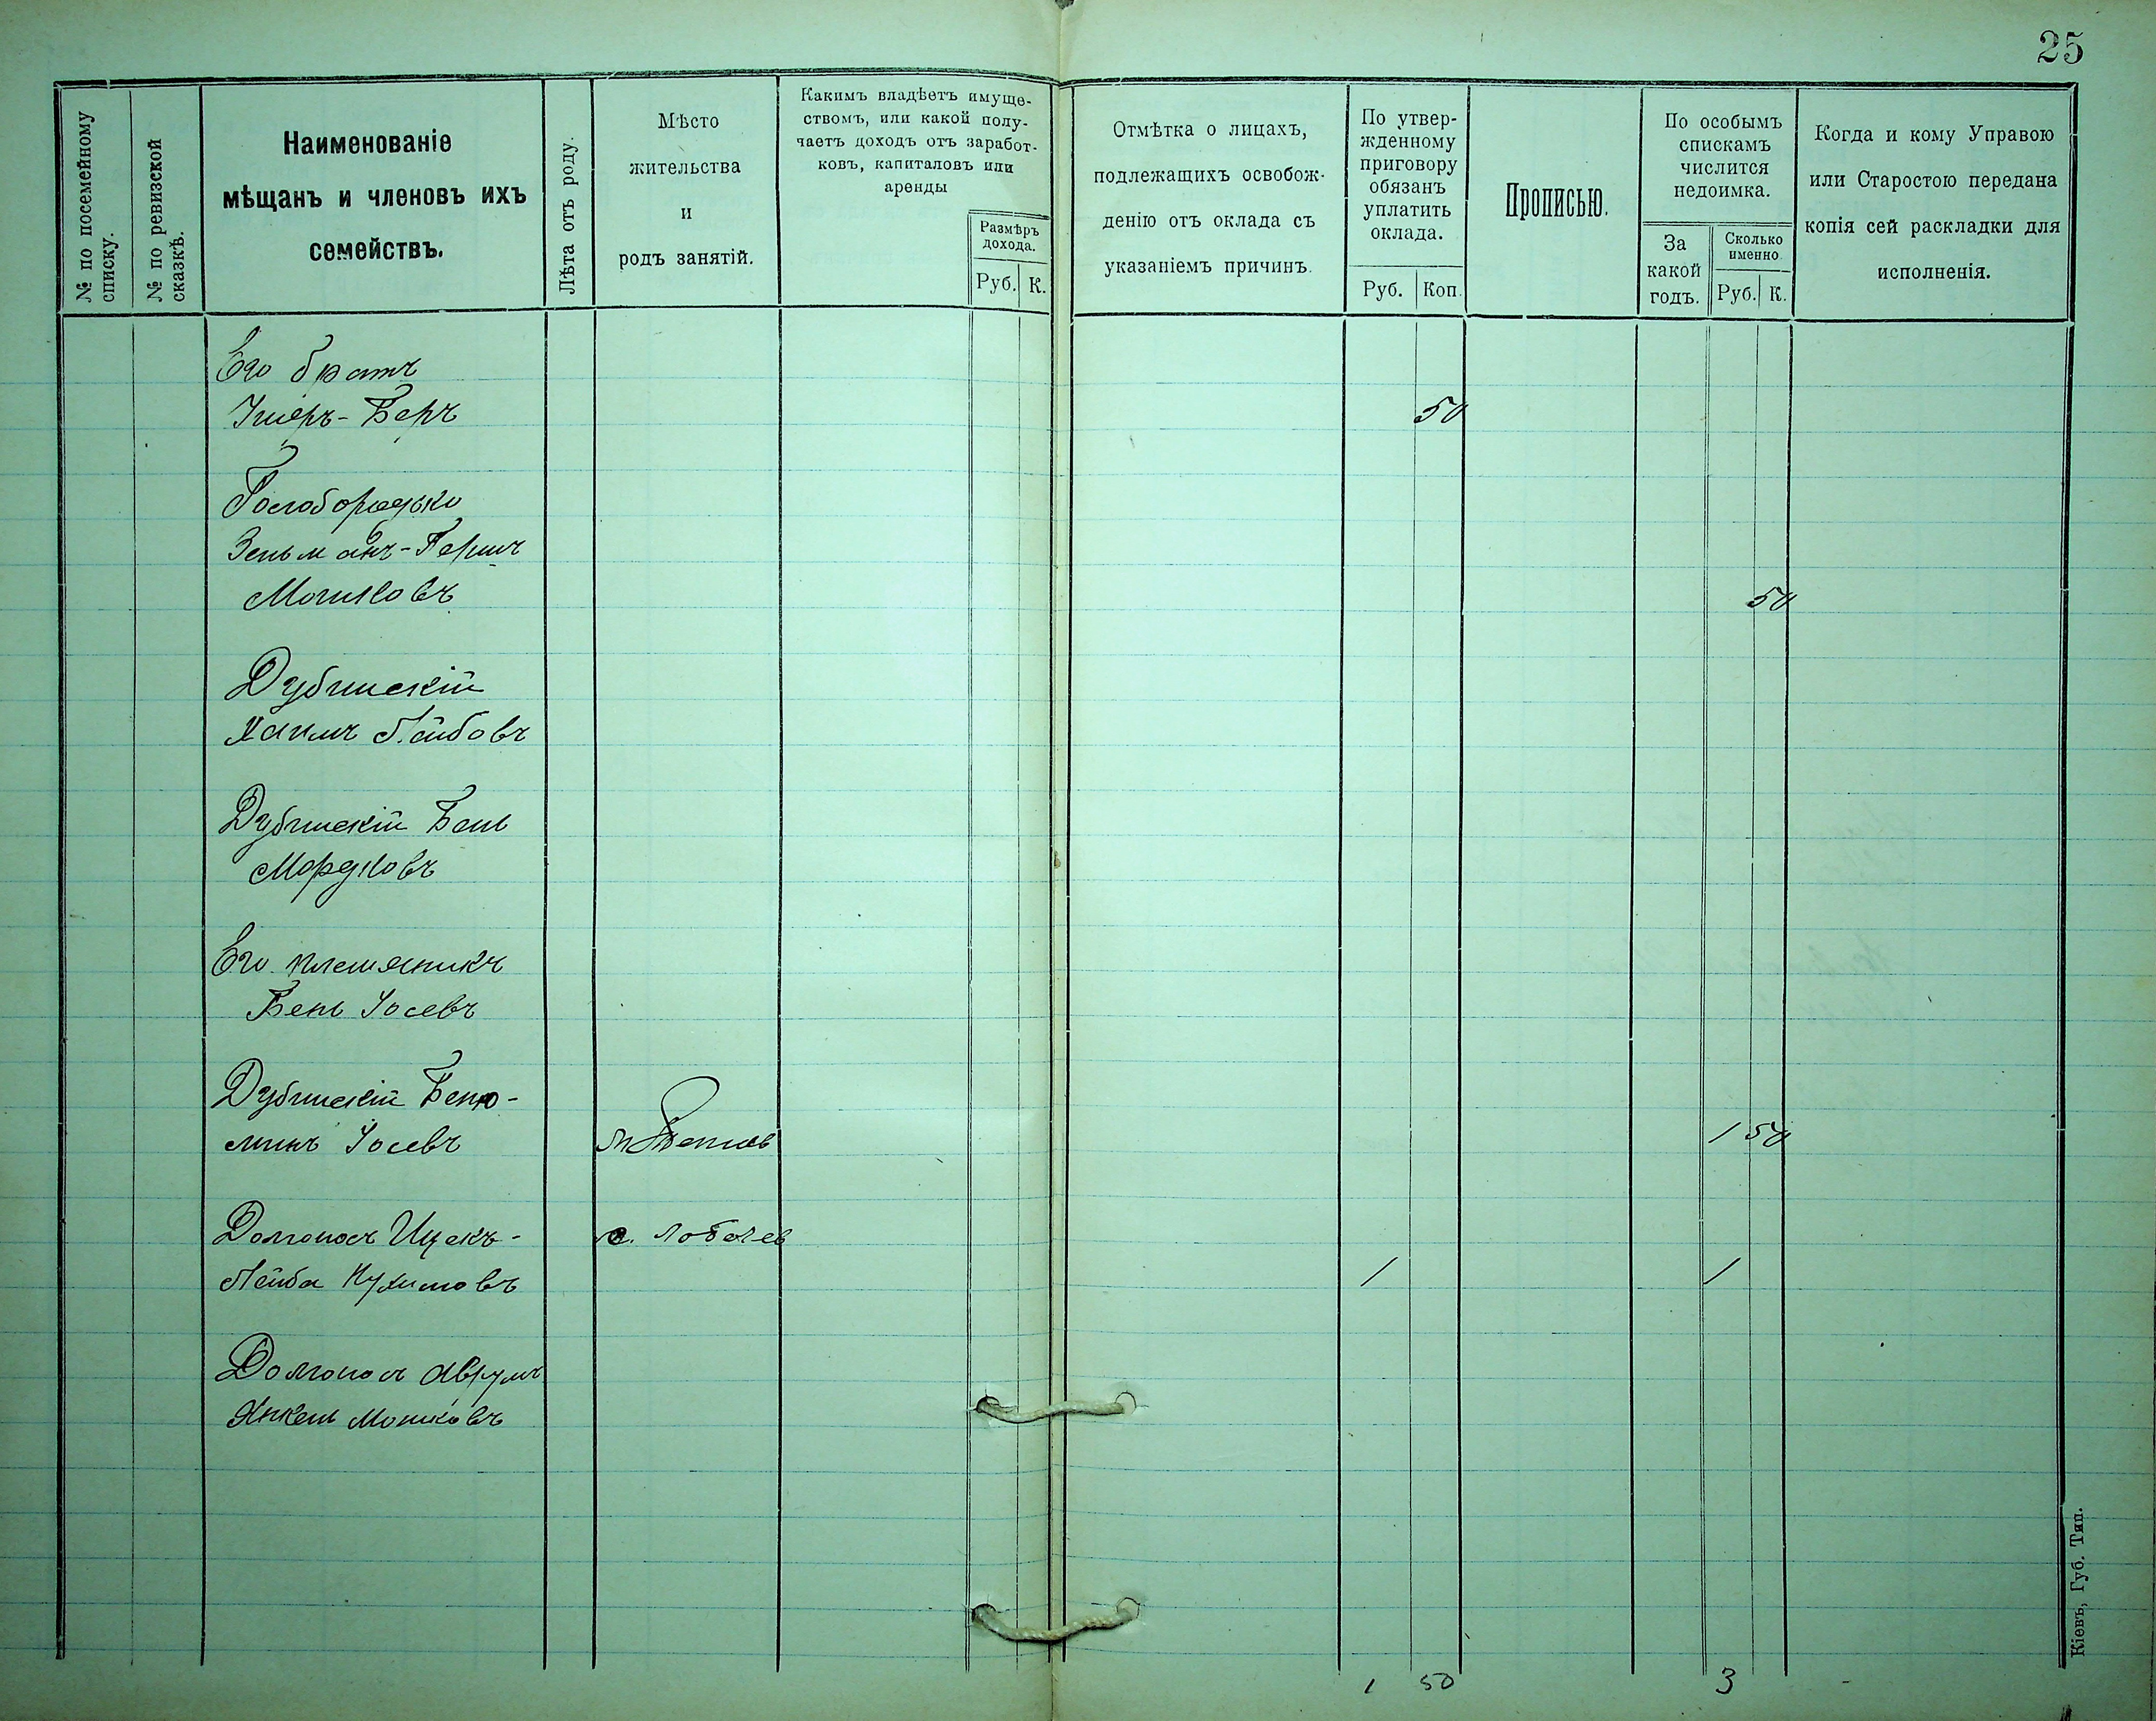 25
№ по посемейному
списку.
№ по ревизской
сказкѣ.
Наименованіе
мѣщанъ и членовъ ихъ
семействъ.
Лѣта отъ роду.
Мѣсто
жительства
и
родъ занятій.
Какимъ владѣетъ имуще-
ствомъ, или какой полу-
чаетъ доходъ отъ заработ-
ковъ, капиталовъ или
аренды
Размѣръ
дохода.
Руб. К.
Отмѣтка о лицахъ,
подлежащихъ освобож-
денію отъ оклада съ
указаніемъ причинъ.
По утвер-
жденному
приговору
обязанъ
уплатить
оклада.
Руб. Коп.
Прописью.
По особымъ
спискамъ
числится
недоимка.
За
какой
годъ.
Сколько
именно
Руб. К.
Когда и кому Управою
или Старостою передана
копія сей раскладки для
исполненія.
Его братъ
Умеръ-Беръ 50
Голобородько
Зельманъ-Гершъ
Мошковъ 50
Дубинскій
Хаимъ Лейбовъ
Дубинскій Бенъ
Мордковъ
Его племяникъ
Бень Іосевъ
Дубинскій Беню-
минъ Іосевъ 1 50
Долгоносъ Ицекъ- с. Лобачев
Лейба Нухимовъ 1 1
Долгоносъ Аврумъ
Янкель Мошковъ
1 50 3
Кіевъ, Губ. Тип.